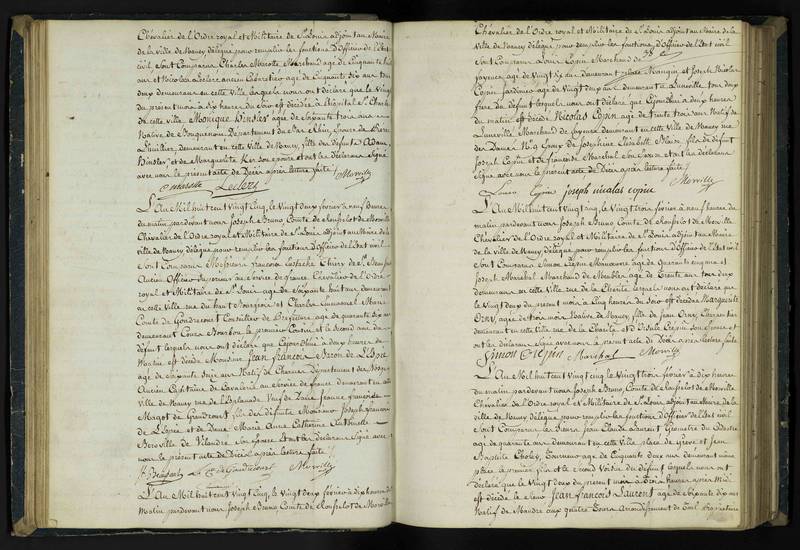 Chevalier de l'Ordre royal et Militaire de St Louis adjoint au Maire
de la ville de Nancy délégué pour remplir les fonctions d'Officier de l'Etat
civil, sont Comparus Charles Marotte Marchand agé de Cinquante huit
ans et Nicolas Leclerc ancien agé de Cinquante dix ans tous
deux demeurant en cette Ville lesquels nous ont déclaré que le Vingt
du présent mois à dix heures du Soir est décédée à l'hôpital St Charles
de cette ville Monique Hinsler agée de soixante trois ans
Native de Bouquenom Département du Bas Rhin, Epouse de Pierre
Lhuillier, demeurant en cette Ville de Nancy, fille des défunts Adam
Hinsler et de Marguerite Ker son épouse et ont les déclarans signé
avec nous le présent acte de Décès après lecture faite
Marotte Leclerc Merville
L'An Mil huit cent Vingt Cinq, le Vingt deux février à neuf heures
du matin pardevant nous Joseph Bruno Comte de Merville
Chevalier de l'Ordre royal et Militaire de St Louis adjoint au Maire de la
ville de Nancy délégué pour remplir les fonctions d'Officier de l'Etat civil
Sont Comparus Messieurs françois Eustache Thiery de St
Ancien Officier Supérieur au Service de france Chevalier de l'Ordre
royal et Militaire de St Louis agé de soixante huit ans demeurant
en cette ville rue du haut Bourgeois et Charles Emmanuel Marie
Comte de Gondrecourt Conseiller de Préfecture agé de quarante dix ans
demeurant Cours Bourbon le premier Cousin et le Second ami du
défunt lesquels nous ont déclaré que Cejourd'hui à deux heures du
Matin est décédé Monsieur Jean françois Baron de L'Espée
agé de soixante seize ans Natif de Charmes Département des Vosges
Ancien Capitaine de Cavalerie au Service de france demeurant en cette
Ville de Nancy rue de l'Esplanade Veuf de Dame Jeanne françoise
Magot de Gondrecourt fils des défunts Monsieur Joseph françois
de L'Espée et de Dame Marie Anne Catherine
de son épouse et ont les déclarans signé avec
nous le présent acte de Décès après lecture faite
Le Cte de Gondrecourt Merville
L'An Mil huit cent Vingt Cinq, le Vingt deux février à dix heures du
Matin pardevant nous Joseph Bruno Comte de Merville
Chevalier de l'Ordre royal et Militaire de St Louis adjoint au Maire de la
Ville de Nancy délégué pour remplir les fonctions d'Officier de l'Etat civil
Sont Comparus Louis Copin Marchand de
fayence agé de Vingt Six ans demeurant et Joseph Nicolas
Copin Jardinier agé de Vingt deux ans demeurant à Luneville tous deux
frères du défunt lesquels nous ont déclaré que Cejourd'hui à deux heures
du matin est décédé Nicolas Copin agé de trente trois ans Natif de
Luneville Marchand de fayence demeurant en cette Ville de Nancy rue
des Dames Epoux de Josephine Elisabeth fils de défunt
Joseph Copin et de françoise Marchal sa Veuve et ont les déclarans
signé avec nous le présent acte de Décès après lecture faite
Louis Copin joseph nicolas copin Merville
L'An Mil huit cent Vingt Cinq, le Vingt trois février à neuf heures du
matin pardevant nous Joseph Bruno Comte de Merville
Chevalier de l'Ordre royal et Militaire de St Louis adjoint au Maire
de la Ville de Nancy délégué pour remplir les fonctions d'Officier de l'Etat civil
Sont Comparus Simon Crepin Manoeuvre agé de quarante cinq ans et
Joseph Maréchal Marchand de Meubles agé de Trente ans tous deux
demeurant en cette Ville rue de la Charité lesquels nous ont déclaré que
le Vingt deux du présent mois à Cinq heures du Soir est décédée Marguerite
Orny agée de trois mois Native de Nancy fille de Jean Orny
demeurant en cette Ville rue de la Charité et d'Ursule Crepin son épouse et ont
les déclarans signé avec nous le présent acte de Décès après lecture faite
Simon Crepin Marechal Merville
L'An Mil huit cent Vingt Cinq, le Vingt trois février à dix heures
du matin pardevant nous Joseph Bruno Comte de Merville
Chevalier de l'Ordre royal et Militaire de St Louis adjoint au Maire de la
Ville de Nancy délégué pour remplir les fonctions d'Officier de l'Etat civil
Sont Comparus les Sieurs Jean Claude Laurent Géomètre du Cadastre
agé de quarante ans demeurant en cette Ville place de Grève et Jean
Baptiste Cholez, Tourneur agé de Cinquante deux ans demeurant même
place le premier fils et le Second Voisin du défunt lesquels nous ont
déclaré que le Vingt deux du présent mois à Trois heures après Midi
est décédé le Sieur Jean françois Laurent agé de soixante dix ans
Natif de Mandre aux quatre Tours Arrondissement de Toul Propriétaire